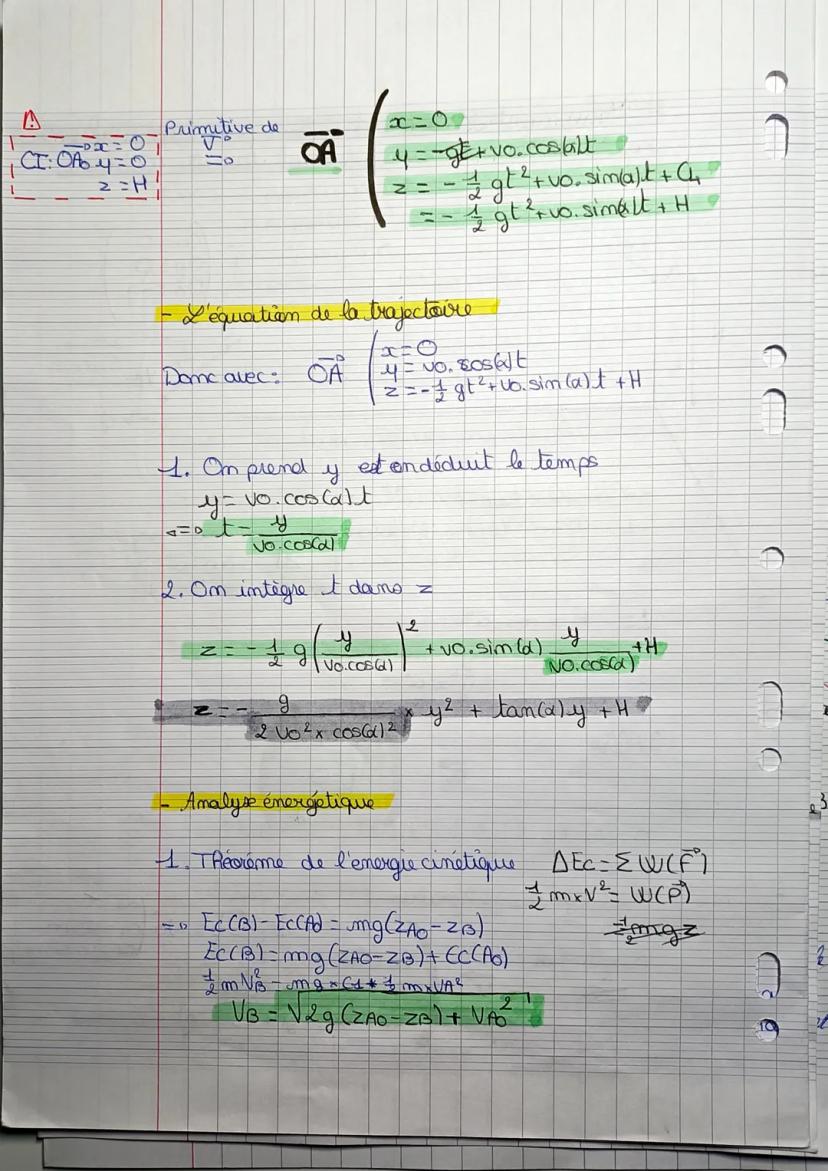 ⚠
CI: OA₀ x = 0
y = 0
z = H
Primitive de V =>
OA ( x = 0
y = -gt + v0.cos(α)t
z = - 1/2 gt² + v0.sin(α)t + C4
= - 1/2 gt² + v0.sin(α)t + H
- L'équation de la trajectoire
Donc avec : OA ( x = 0
y = v0.cos(α)t
z = - 1/2 gt² + v0.sin(α)t + H
1. On prend y et on déduit le temps
y = v0.cos(α)t
<=> t = y / v0.cos(α)
2. On intègre t dans z
z = - 1/2 g ( y / v0.cos(α) )² + v0.sin(α) y / v0.cos(α) + H
z = - g / 2 v0² x cos(α)² x y² + tan(α) y + H
- Analyse énergétique
1. Théorème de l'energie cinétique ΔEc = Σ W(F)
1/2 m x V² = W(P)
=> Ec(B) - Ec(A₀) = mg(zA0 - zB)
Ec(B) = mg(zA0 - zB) + Ec(A0)
VB = √2g(zA0 - zB) + VA0²